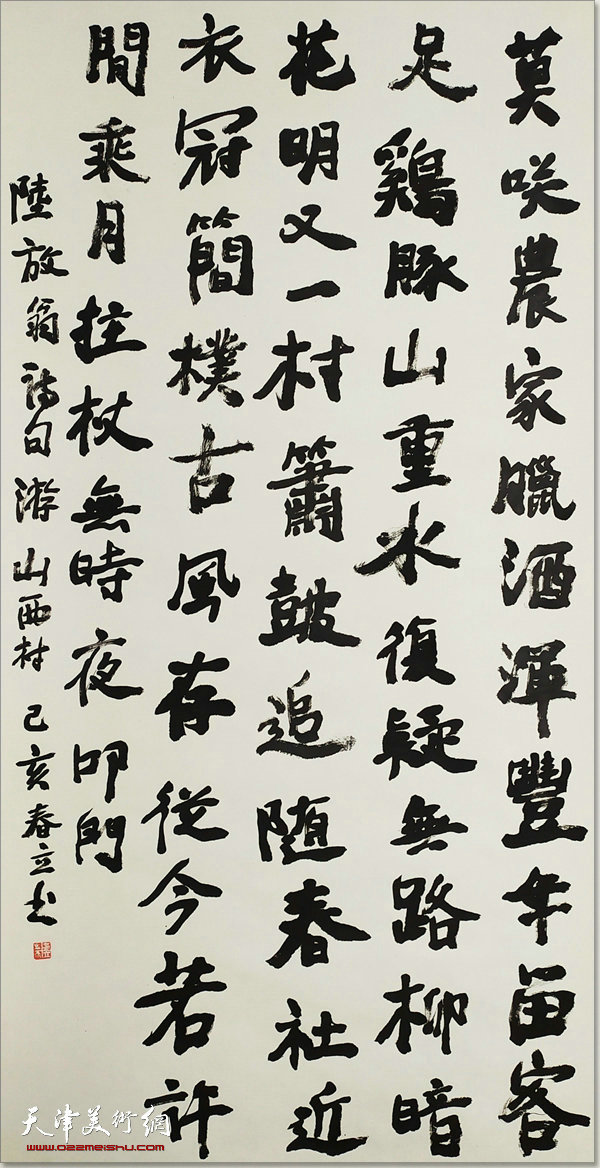 莫咲農家臘酒渾豐年留客
足鷄豚山重水復疑無路柳暗
花明又一村簫鼓追随春社近
衣冠簡樸古風存從今若許
閒乘月拄杖無時夜叩門
陸放翁詩句游山西村己亥春立书
天津美術網
www.022meishu.com